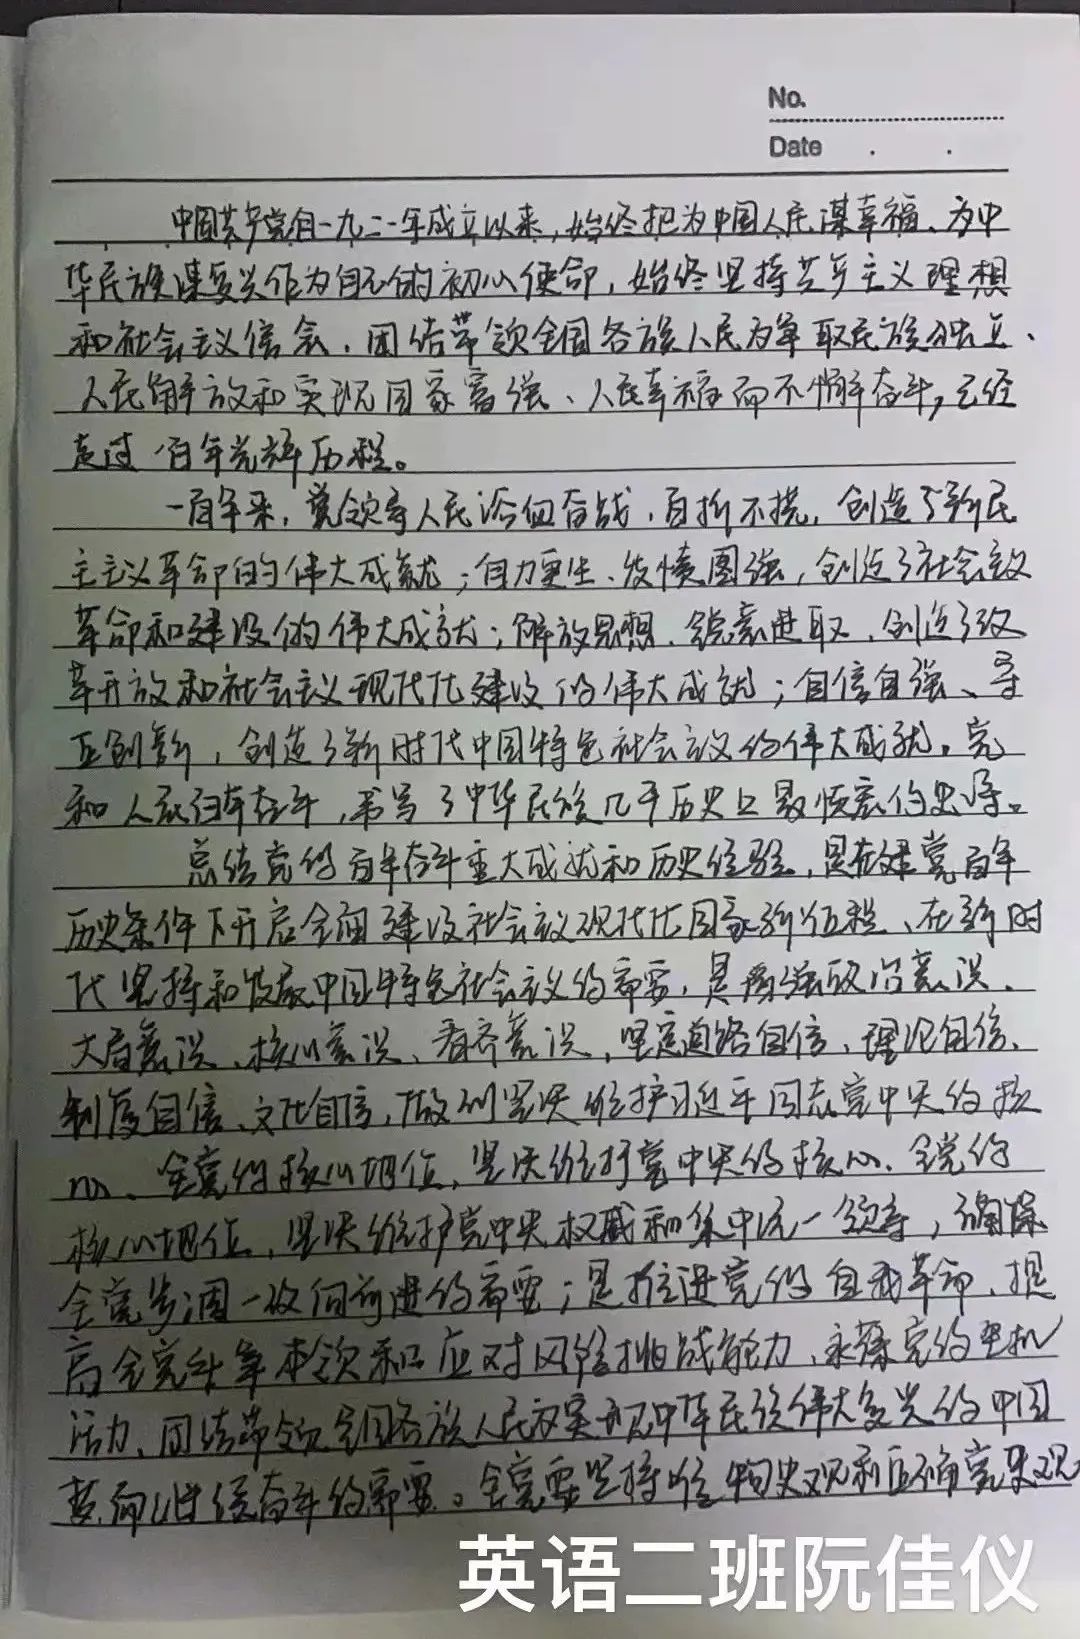 No.
Date
中国共产党自一九二一年成立以来，始终把为中国人民谋幸福、为中
华民族谋复兴作为自己的初心使命，始终坚持共产主义理想
和社会主义信念，团结带领全国各族人民为争取民族独立、
人民解放和实现国家富强、人民幸福而不懈奋斗，已经
走过一百年光辉历程。
一百年来，党领导人民浴血奋战、百折不挠，创造了新民
主主义革命的伟大成就；自力更生、发愤图强，创造了社会主义
革命和建设的伟大成就；解放思想、锐意进取，创造了改
革开放和社会主义现代化建设的伟大成就；自信自强、守
正创新，创造了新时代中国特色社会主义的伟大成就。党
和人民百年奋斗，书写了中华民族几千年历史上最恢宏的史诗。
总结党的百年奋斗重大成就和历史经验，是在建党百年
历史条件下开启全面建设社会主义现代化国家新征程、在新时
代坚持和发展中国特色社会主义的需要，是增强政治意识、
大局意识、核心意识、看齐意识，坚定道路自信、理论自信、
制度自信、文化自信，做到坚决维护习近平同志党中央的核
心、全党的核心地位，坚决维护党中央的核心、全党的
核心地位，坚决维护党中央权威和集中统一领导，确保
全党步调一致向前进的需要；是推进党的自我革命、提
高全党斗争本领和应对风险挑战能力、永葆党的生机
活力、团结带领全国各族人民为实现中华民族伟大复兴的中国
梦而继续奋斗的需要。全党要坚持唯物史观和正确党史观
英语二班阮佳仪